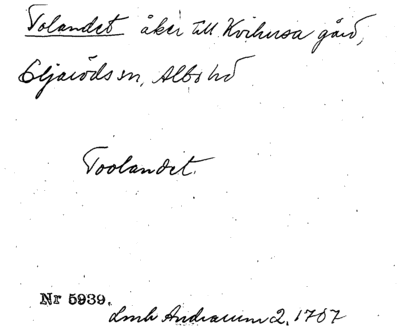 Tolandet åker till Kvihusa gård,
Eljaröds sn, Albo hd
Toolandet.
Nr 5939.
Lmh Andrarum 2, 1707